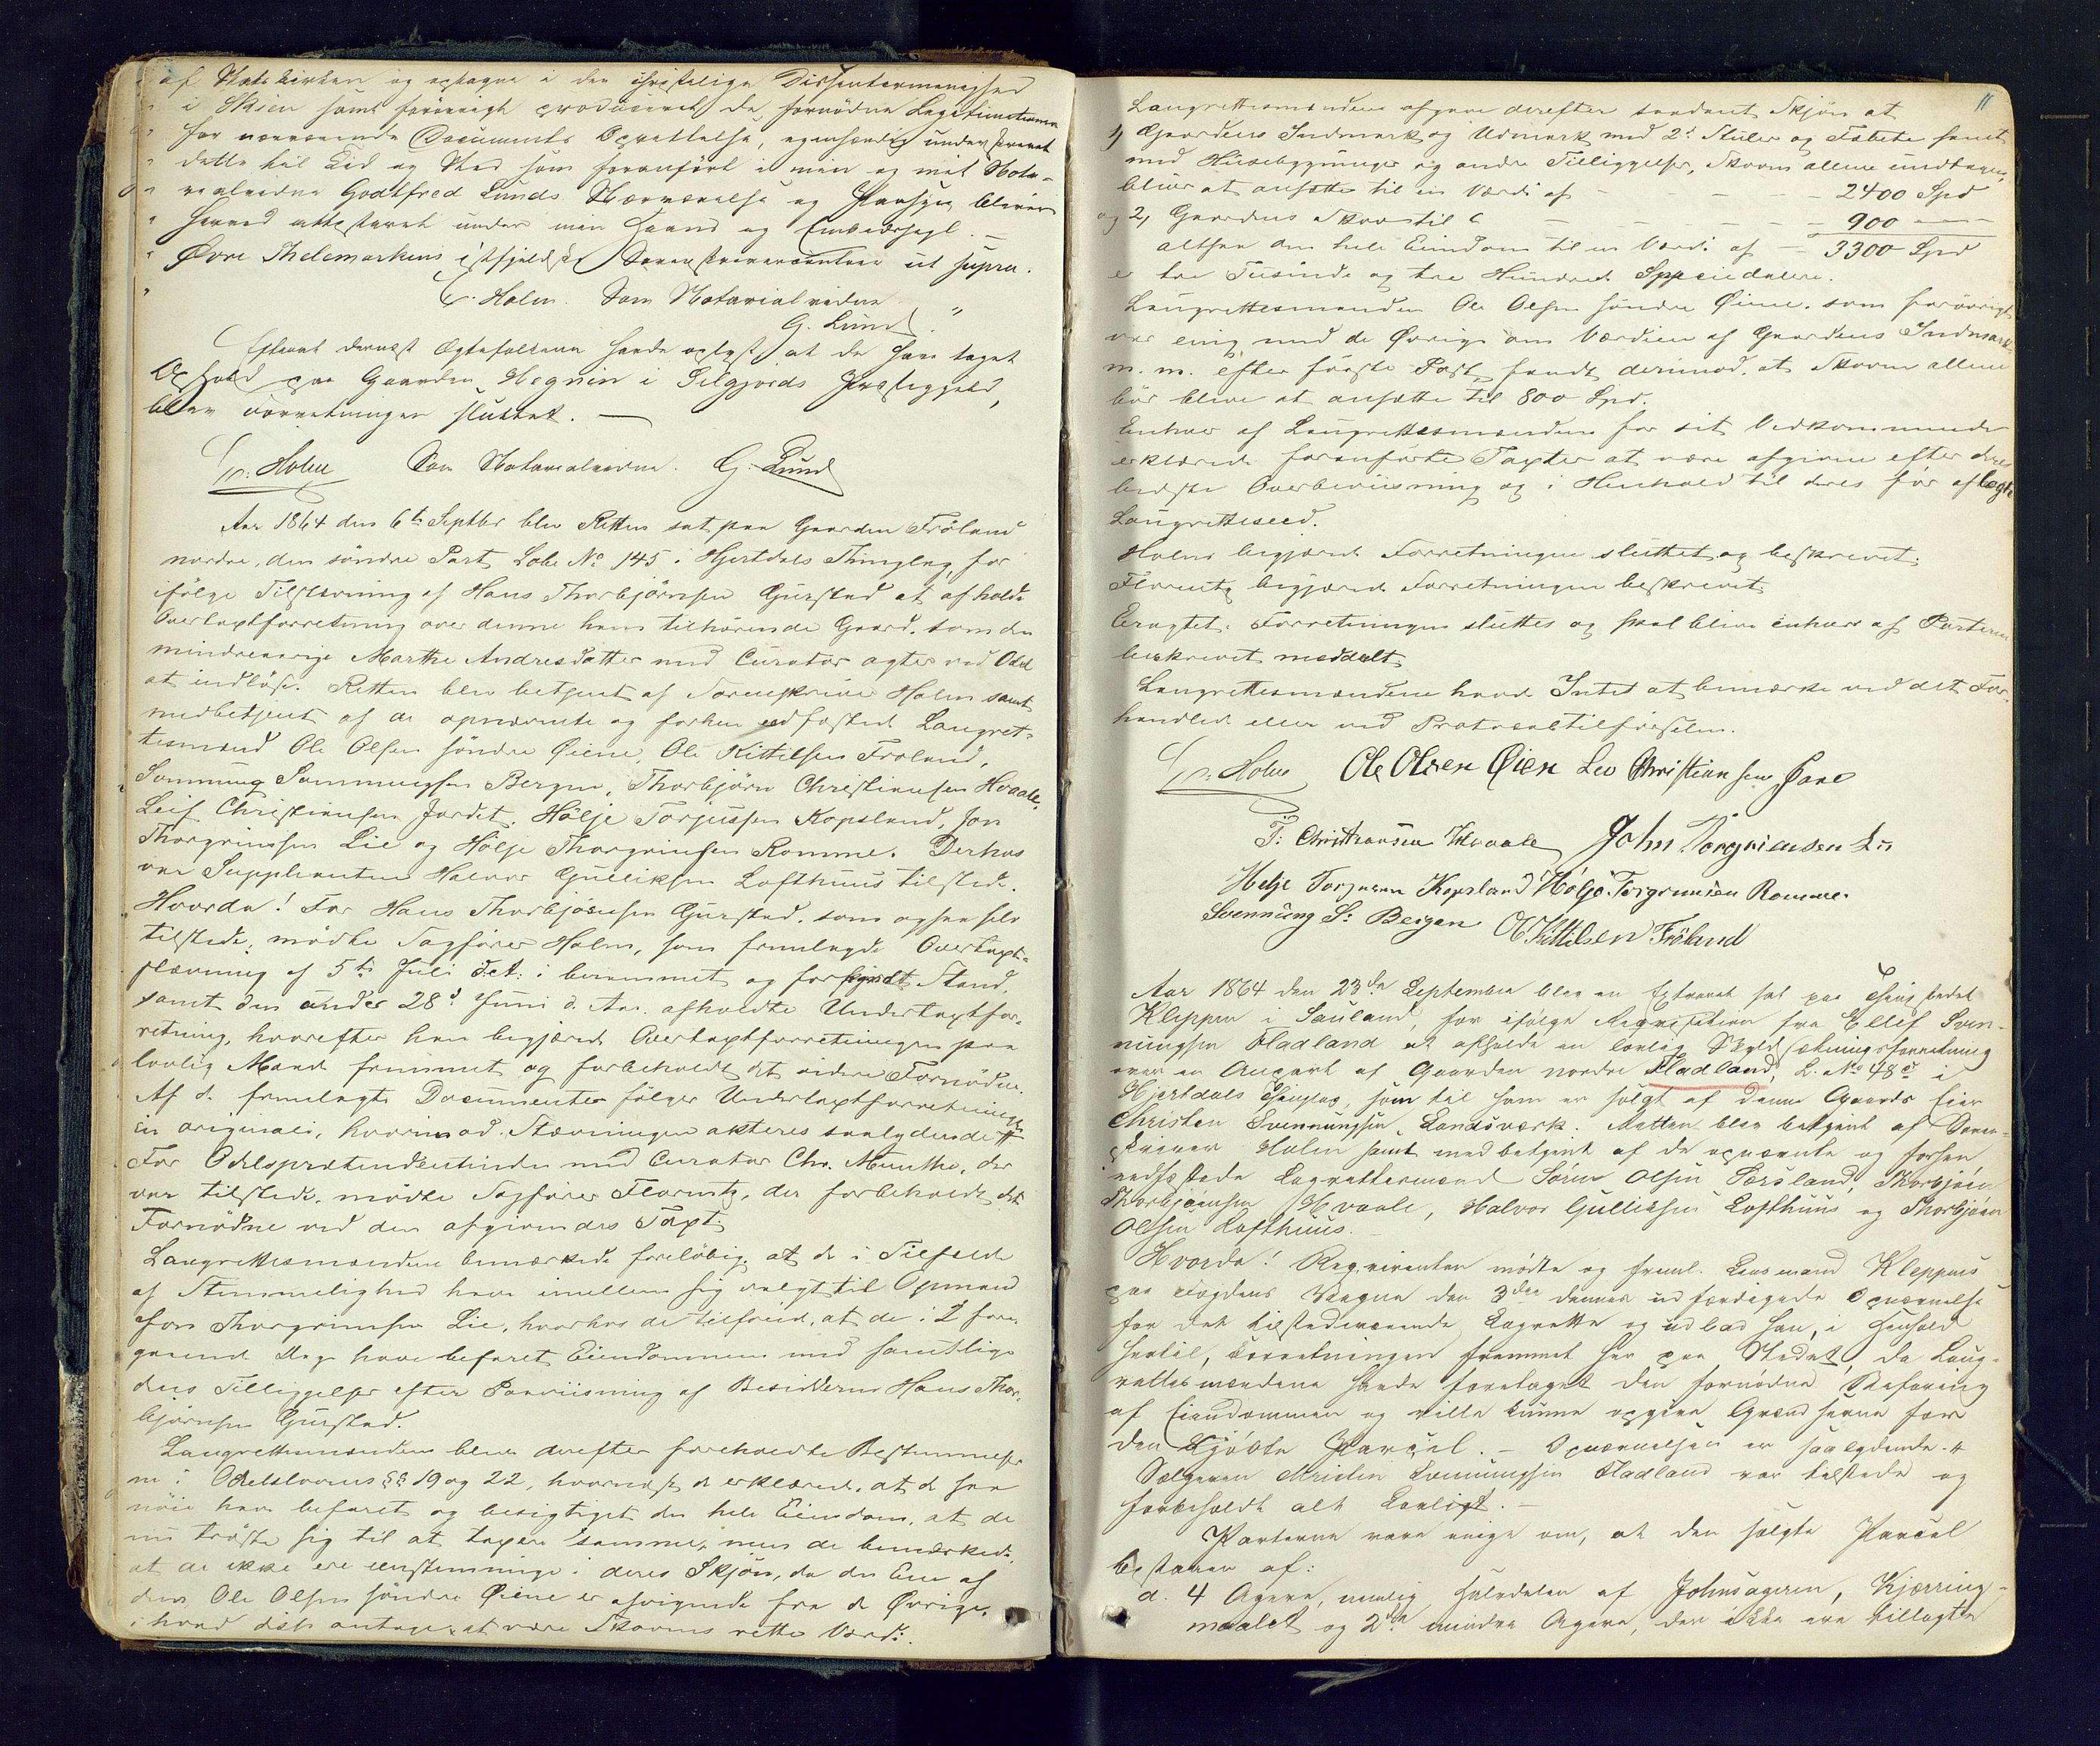 af Statskirken og optagne i den christelige Dissentermenighed
i Skien samt forøvrigt produceret de fornødne Legitimationer
for nærværende Documents Oprettelse, egenhændig underskrevet
dette til Tid og Sted som foranført i min og mit Nota-
rialvidne Godtfred Lunds Nærværelse og Paasyn bliver
herved attesteret under min Haand og Embedssegl. —
Øvre Thelemarkens østfjeldske Sorenskriverembede ut supra.
Holm. Som Notarialvidne
G. Lund."
Efterat dernæst Ægtefolkene havde oplyst at de have taget
Ophold paa Gaarden Hegnin i Silgjords Præstegjeld,
blev Forretningen sluttet. —
Holm Som Notarialvidne. G. Lund
Aar 1864 den 6te Septbr blev Retten sat paa Gaarden Fröland
nordre, den söndre Part Løbe No 145 i Hjertdals Thinglag, for
ifölge Tilstævning af Hans Thorbjörnsen Gurstad at afholde
Overtaxtforretning over denne ham tilhörende Gaard, som den
mindreaarige Marthe Andresdatter med Curator agter ved Odel
at indlöse. Retten blev betjent af Sorenskriver Holm samt
medbetjent af de opnævnte og forhen edfæstede Laugret-
tesmænd Ole Olsen söndre Øiene, Ole Kittilsen Froland,
Svennung Svennungsen Bergen, Thorbjörn Christiansen Hvaale,
Leif Christiansen Jordet, Hölje Torjussen Kopsland, Jon
Thorgrimsen Lie og Hölje Thorgrimsen Romme. Derhos
var Supplianten Halvor Gulliksen Lofthuus tilstede.
Hvorda! For Hans Thorbjörnsen Gurstad, som ogsaa selv
tilstede, mödte Sagförer Holm, som fremlagde Overtaxt-
stævning af 5te Juli d.A. i berammet og forkyndt Stand,
samt den under 28de Juni d. Aar. afholdte Undertaxtfor-
retning, hvorefter han begjærede Overtaxtforretningen paa
lovlig Maade fremmet og forbeholdt det videre Fornödne.
Af de fremlagte Documenter fölger Undertaxtforretningen
in originali, hvorimod Stævningen akteres saalydende #
For Odelsprætendentinden med Curator Chr. Munthe, der
var tilstede, mödte Sagförer Florentz, der forbeholdt det
Fornödne ved den afgivendes Taxt.
Laugrettesmændene bemærkede forelöbig, at de i Tilfælde
af Stemmelighed have imellem sig valgt til Opmand
Jon Thorgrimsen Lie, hvorhos de tilföied, at de i 2 fore-
gaaende Dage have befaret Eiendommen med samtlige
dens Tilliggelser efter Paaviisning af Besidderen Hans Thor-
björnsen Gurstad.
Laugrettesmændene blev derefter foreholdt Bestemmelser-
ne i Odelslovens §§ 19 og 22, hvornæst de erklærede, at de saa
nöie have befaret og besigtiget den hele Eiendom, at de
nu tröste sig til at taxere samme, men de bemærkede,
at de ikke ere eenstemmige i deres Skjön, da den Ene af
dem, Ole Olsen söndre Øiene er afvigende fra de Øvrige,
i hvad der antages at være Skovens rette Værdi.
11
Laugrettesmændene afgave derefter saadant Skjön at
1, Gaardens Indmark og Udmark med 2de Støler og Fæbeite samt
med Huusebygninger og andre Tilliggelser, Skoven allene undtagen,
bliver at ansætte til en Værdi af — 2400 Spd
og 2, Gaardens Skov til — 900 —
altsaa den hele Eiendom til en Værdi af — 3300 Spd
er tre Tusinde og tre Hundrede Speciedalere.
Laugrettesmanden Ole Olsen söndre Øiene, som forövrigt
var enig med de Øvrige om Værdien af Gaardens Indmark
m. m. efter förste Post, fandt derimod, at Skoven allene
bör blive at ansætte til 800 Spd.
Enhver af Laugrettesmændene for sit Vedkommende
erklærede foranförte Taxter at være afgivne efter deres
bedste Overbeviisning og i Henhold til deres för aflagte
Laugretteseed.
Holm begjærede Forretningen sluttet og beskrevet.
Florentz begjærede Forretningen beskrevet.
Eragtet: Forretningen sluttes og skal blive enhver af Parterne
beskrevet meddelt.
Laugrettesmændene havde Intet at bemærke ved det For-
handlede eller ved Protocoltilførselen.
Holm Ole Olsen Øien Lev Christiansen Jore
T: Christiansen Hvaale John Torgrimsen Lie
Helje Torjusen Kopsland Hölje Torgrimsen Romme.
Svennung S: Bergan O Kittilsen Fröland
Aar 1864 den 23de September blev en Extraret sat paa Thingstedet
Kleppen i Sauland, for ifølge Reqvisition fra Ellef Sven-
nungsen Fladland at afholde en lovlig Skyldsætningsforretning
over en Anpart af Gaarden nordre Fladland, L. No 48 i
Hjertdals Thinglag, som til ham er solgt af denne Gaards Eier
Christen Svennungsen Landsværk. Retten blev betjent af Soren-
skriver Holm samt medbetjent af de opnævnte og forhen
edfæstede Lagrettesmænd Sören Olsen Særsland, Thorbjörn
Thorbjörnsen Hvaale, Halvor Gulliksen Lofthuus og Thorbjörn
Olsen Lofthuus. —
Hvorda! Reqvirenten mødte og freml. Lensmand Kleppens
paa Fogdens Vegne den 3die dennes udfærdigede Opnævnelse
for det tilstedeværende Lagrette og udbad sig, i Henhold
hertil, Forretningen fremmet her paa Stedet, da Laug-
rettesmændene havde foretaget den fornødne Befaring
af Eiendommen og ville kunne opgive Grændserne for
den kjöbte Parcel. — Opnævnelsen er saalydende #
Sælgeren Christen Svennungsen Fladland var tilstede og
forbeholdt alt Lovligt. —
Parterne vare enige om, at den solgte Parcel
bestaaer af:
a. 4 Agere, nemlig Halvdelen af Johnsageren, Kjærring-
maalet og 2de mindre Agere, der ikke ere tillagte